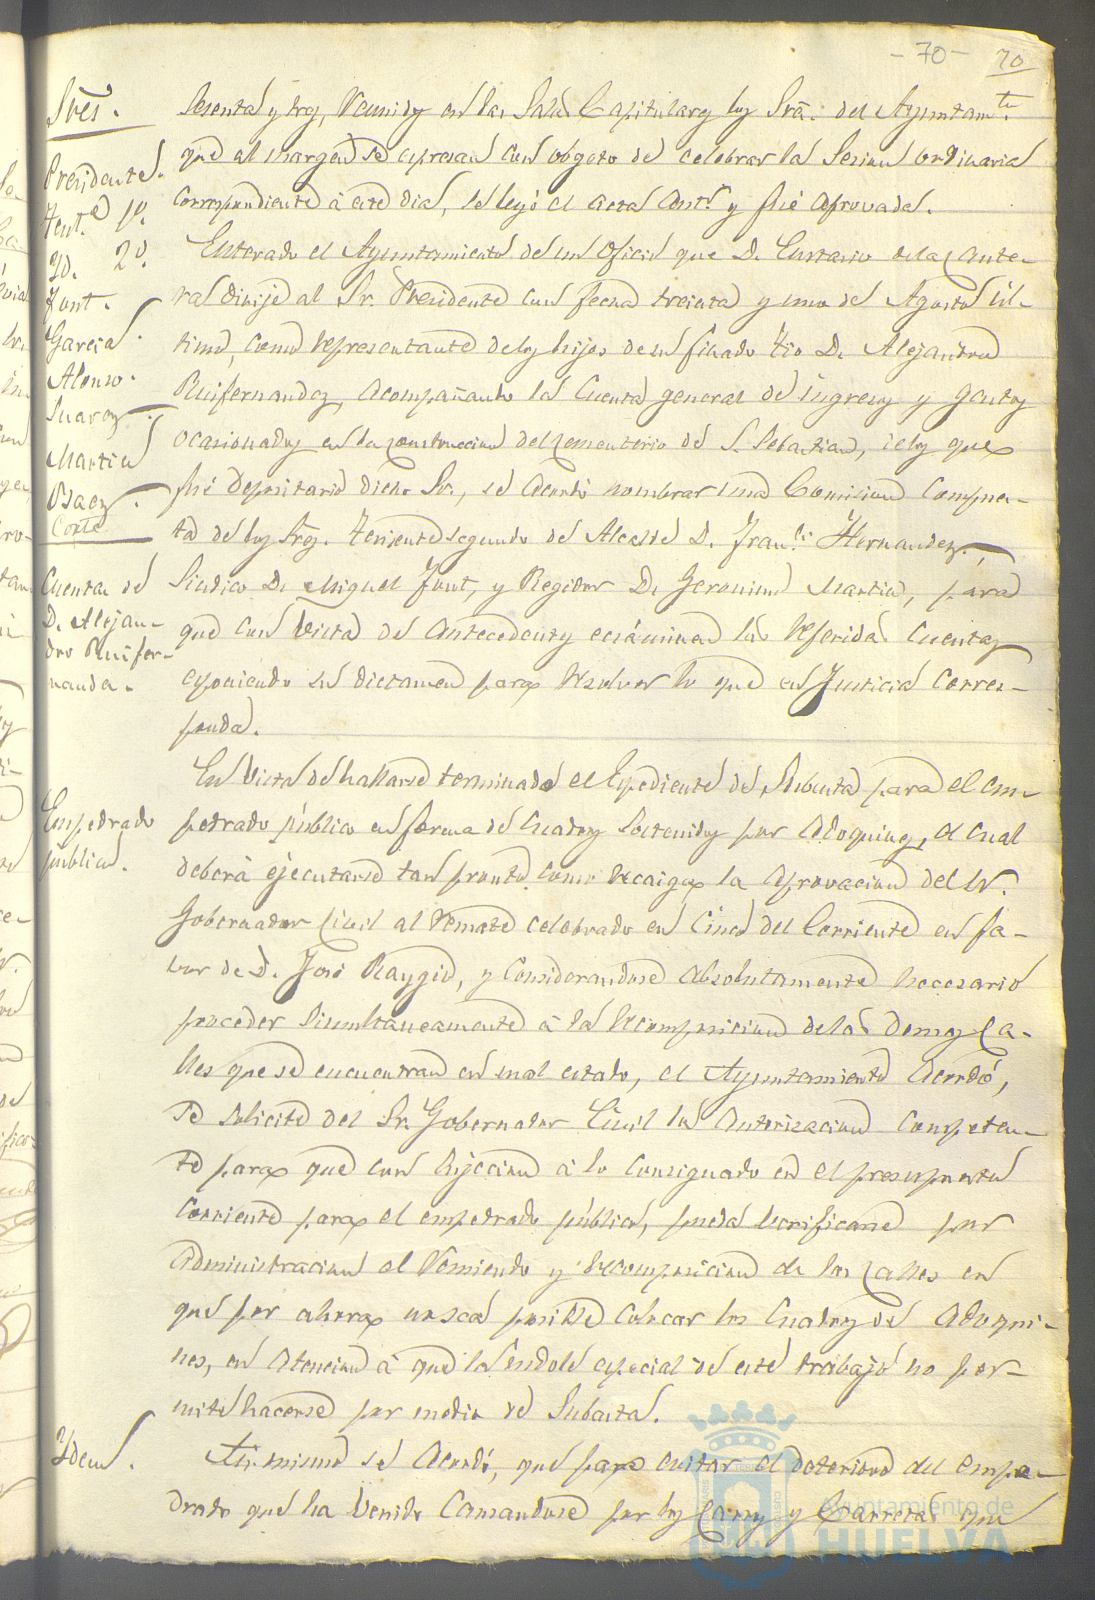 - 70 - 70
Sres.
Presidente.
Tente. 1º.
Yd. 2º.
Font.
Garcia.
Alonso.
Suarez.
Martin
Baez.
Corte
sesenta y tres, reunidos en las Salas Capitulares los Sres. del Ayuntamto.
que al margen se espresan con objeto de celebrar la sesion ordinaria
correspondiente á este dia, se leyó el acta antr. y fué aprovada.
Cuenta de
D. Alejan-
dro Ruifer-
nandez.
Enterado el Ayuntamiento de un oficio que D. Eustasio de la Cante-
ra dirije al Sr. Presidente con fecha treinta y uno de Agosto úl-
timo, como representante de los hijos de su finado tio D. Alejandro
Ruifernandez, acompañando la Cuenta general de ingresos y gastos
ocasionados en la construccion del cementerio de S. Sebastian, de los que
fué depositario dicho Sr., se acordó nombrar una Comision compues-
ta de los Sres. Teniente segundo de Alcalde D. Franco. Hernandez.
Sindico D. Miguel Font, y Regidor D. Geronimo Martin, para
que con vista de antecedentes ecsáminen la referida Cuenta
esponiendo su dictamen para resolver lo que en Justicia corres-
ponda.
Empedrado
público.
En vista de hallarse terminado el Espediente de Subasta para el em-
pedrado público en forma de cuadros sostenidos por adoquines, el cual
deberá ejecutarse tan pronto como recaiga la aprovacion del Sr.
Gobernador Civil al remate celebrado en cinco del corriente en fa-
vor de D. José Raygio, y considerandose absolutamente necesario
proceder simultaneamente á la recomposicion de las demas ca-
lles que se encuentran en mal estado, el Ayuntamiento acordó,
se solicite del Sr. Gobernador Civil la autorizacion competen-
te para que con sujecion á lo consignado en el presupuesto
corriente para el empedrado público, pueda verificarse por
administracion el remiendo y recomposicion de las calles en
que por ahora no sea posible colocar los cuadros de adoqui-
nes, en atencion á que la índole especial de este trabajo no per-
mite hacerse por medio de Subasta.
Ydem.
Asi mismo se acordó, que para evitar el deterioro del empe-
drado que ha venido causandose por los carros y carretas que
Ayuntamiento de
HUELVA